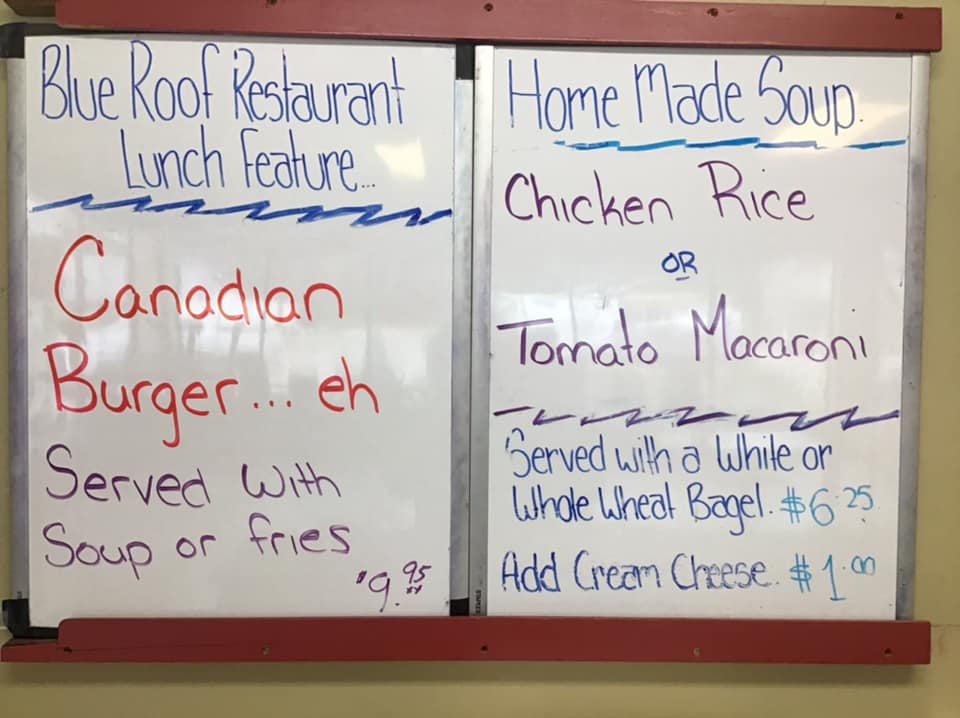 Blue Roof Restaurant
Lunch Feature...
Canadian
Burger... eh
Served With
Soup or fries
$9.95
Home Made Soup.
Chicken Rice
OR
Tomato Macaroni
Served with a White or
Whole Wheat Bagel. $6.25
Add Cream Cheese. $1.00